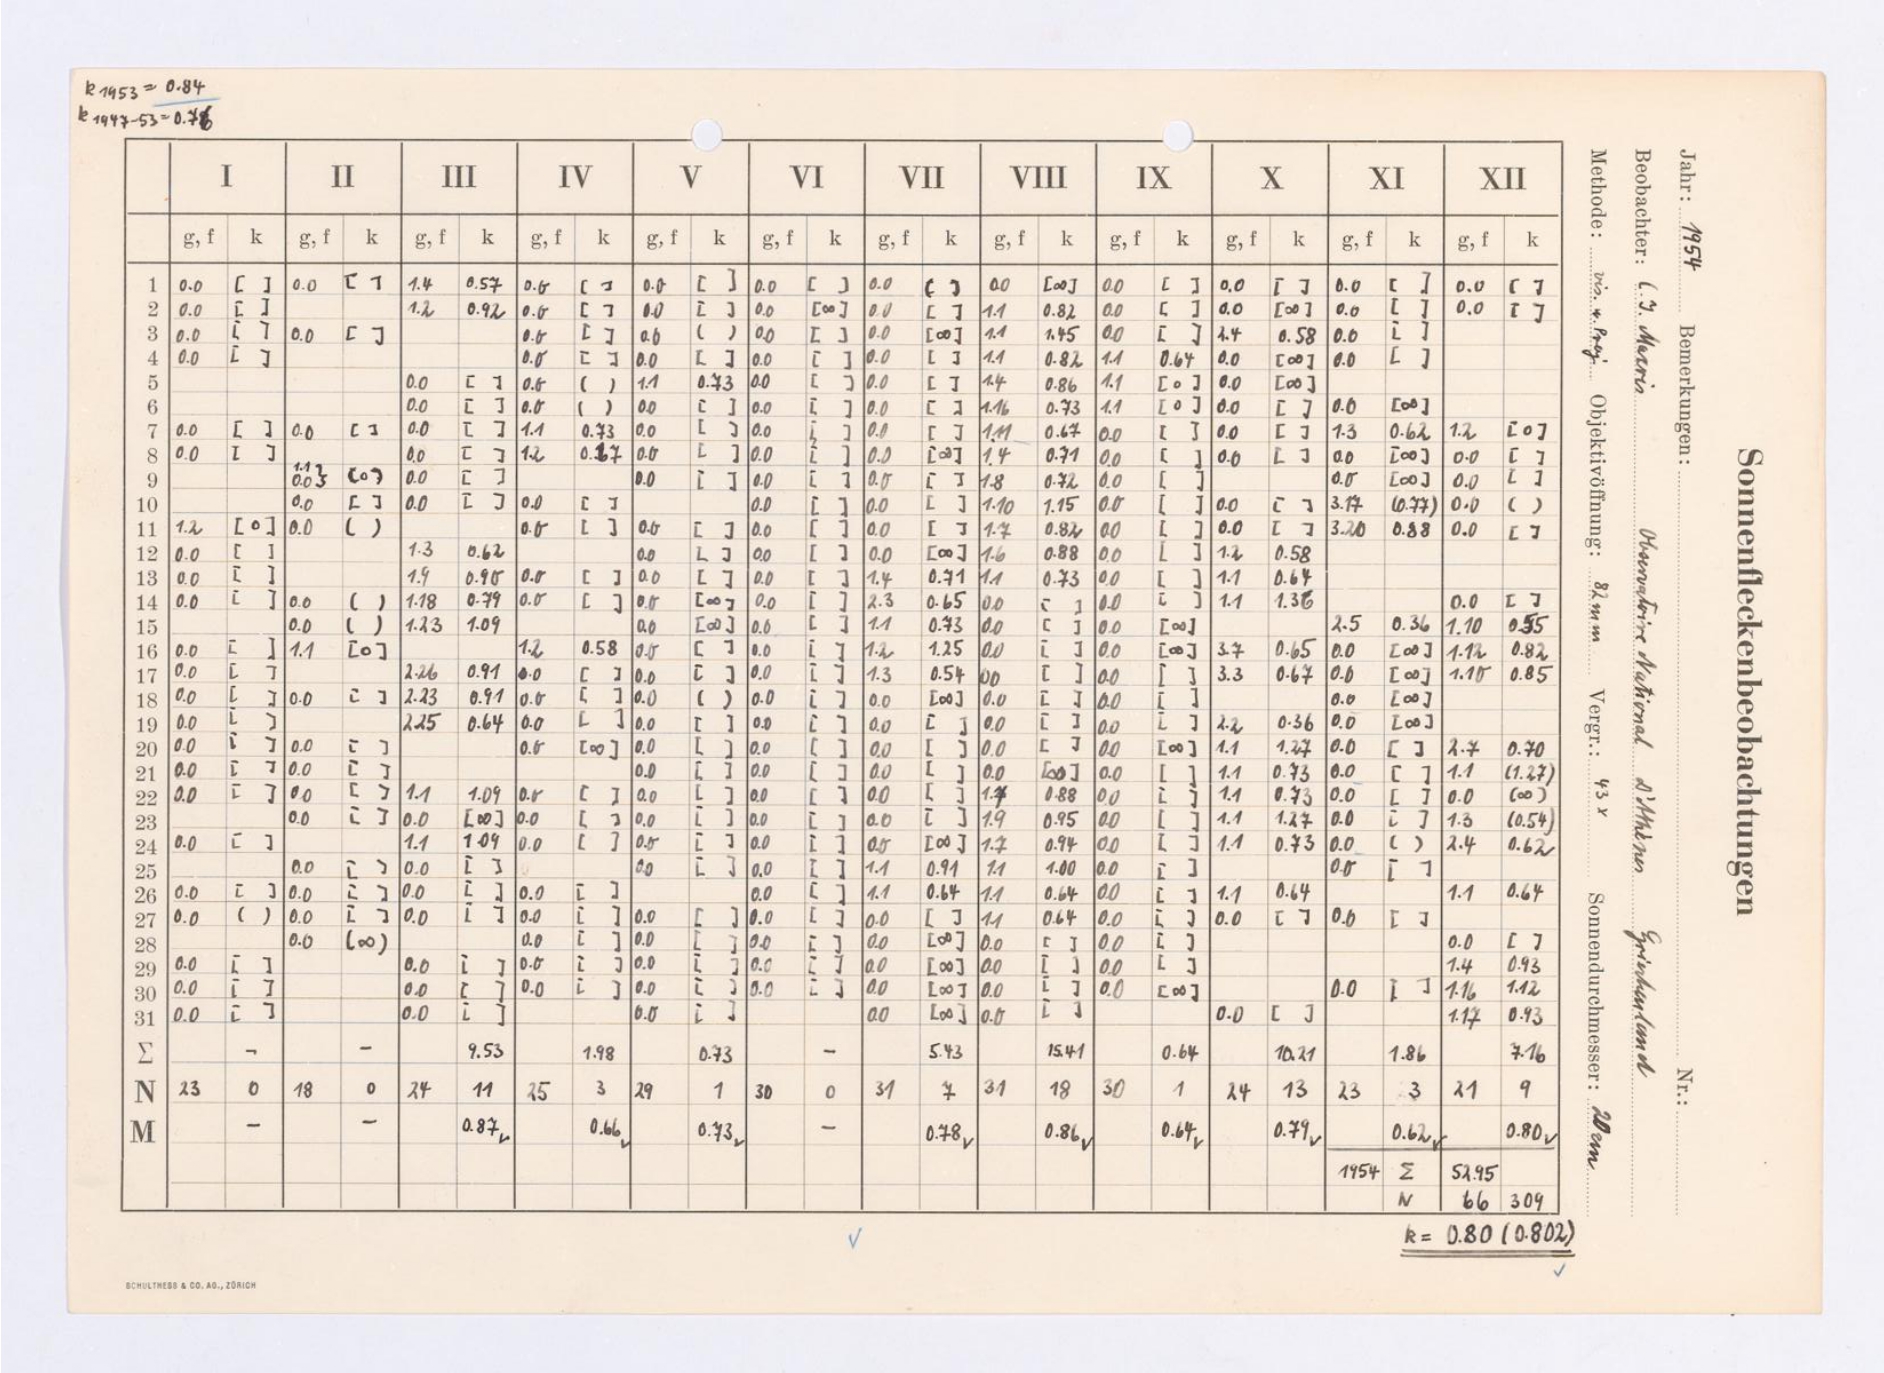 k 1953 = 0.84
k 1947-53 = 0.76
Sonnenfleckenbeobachtungen
Jahr: 1954 Bemerkungen: Nr.:
Beobachter: Observatoire National d'Athènes Griechenland
Methode: vis. u. Proj. Objektivöffnung: 82 mm Vergr.: 43 x Sonnendurchmesser: 20 cm
I II III IV V VI VII VIII IX X XI XII
g, f k g, f k g, f k g, f k g, f k g, f k g, f k g, f k g, f k g, f k g, f k g, f k
1 0.0 [ ] 0.0 [ ] 1.4 0.57 0.0 [ ] 0.0 [ ] 0.0 [ ] 0.0 ( ) 0.0 [∞] 0.0 [ ] 0.0 [ ] 0.0 [ ] 0.0 [ ]
2 0.0 [ ] 1.2 0.92 0.0 [ ] 0.0 [ ] 0.0 [∞] 0.0 [ ] 1.1 0.82 0.0 [ ] 0.0 [∞] 0.0 [ ] 0.0 [ ]
3 0.0 [ ] 0.0 [ ] 0.0 [ ] 0.0 ( ) 0.0 [ ] 0.0 [∞] 1.1 1.45 0.0 [ ] 2.4 0.58 0.0 [ ]
4 0.0 [ ] 0.0 [ ] 0.0 [ ] 0.0 [ ] 0.0 [ ] 1.1 0.82 1.1 0.64 0.0 [∞] 0.0 [ ]
5 0.0 [ ] 0.0 ( ) 1.1 0.73 0.0 [ ] 0.0 [ ] 1.4 0.86 1.1 [0] 0.0 [∞]
6 0.0 [ ] 0.0 ( ) 0.0 [ ] 0.0 [ ] 0.0 [ ] 1.16 0.73 1.1 [0] 0.0 [ ] 0.0 [∞]
7 0.0 [ ] 0.0 [ ] 0.0 [ ] 1.1 0.73 0.0 [ ] 0.0 [ ] 0.0 [ ] 1.11 0.67 0.0 [ ] 0.0 [ ] 1.3 0.62 1.2 [0]
8 0.0 [ ] 0.0 [ ] 1.2 0.67 0.0 [ ] 0.0 [ ] 0.0 [∞] 1.4 0.71 0.0 [ ] 0.0 [ ] 0.0 [∞] 0.0 [ ]
9 [0] 0.0 [ ] 0.0 [ ] 0.0 [ ] 0.0 [ ] 1.8 0.72 0.0 [ ] 0.0 [∞] 0.0 [ ]
10 0.0 [ ] 0.0 [ ] 0.0 [ ] 0.0 [ ] 0.0 [ ] 1.10 1.15 0.0 [ ] 0.0 [ ] 3.17 (0.77) 0.0 ( )
11 1.2 [0] 0.0 ( ) 0.0 [ ] 0.0 [ ] 0.0 [ ] 0.0 [ ] 1.7 0.82 0.0 [ ] 0.0 [ ] 3.20 0.88 0.0 [ ]
12 0.0 [ ] 1.3 0.62 0.0 [ ] 0.0 [ ] 0.0 [∞] 1.6 0.88 0.0 [ ] 1.2 0.58
13 0.0 [ ] 1.9 0.90 0.0 [ ] 0.0 [ ] 0.0 [ ] 1.4 0.71 1.1 0.73 0.0 [ ] 1.1 0.64
14 0.0 [ ] 0.0 ( ) 1.18 0.79 0.0 [ ] 0.0 [∞] 0.0 [ ] 2.3 0.65 0.0 [ ] 0.0 [ ] 1.1 1.36 0.0 [ ]
15 0.0 ( ) 1.23 1.09 0.0 [∞] 0.0 [ ] 1.1 0.73 0.0 [ ] 0.0 [∞] 2.5 0.36 1.10 0.55
16 0.0 [ ] 1.1 [0] 1.2 0.58 0.0 [ ] 0.0 [ ] 1.2 1.25 0.0 [ ] 0.0 [∞] 3.7 0.65 0.0 [∞] 1.12 0.82
17 0.0 [ ] 2.26 0.91 0.0 [ ] 0.0 [ ] 0.0 [ ] 1.3 0.54 0.0 [ ] 0.0 [ ] 3.3 0.67 0.0 [∞] 1.10 0.85
18 0.0 [ ] 0.0 [ ] 2.23 0.91 0.0 [ ] 0.0 ( ) 0.0 [ ] 0.0 [∞] 0.0 [ ] 0.0 [ ] 0.0 [∞]
19 0.0 [ ] 2.25 0.64 0.0 [ ] 0.0 [ ] 0.0 [ ] 0.0 [ ] 0.0 [ ] 0.0 [ ] 2.2 0.36 0.0 [∞]
20 0.0 [ ] 0.0 [ ] 0.0 [∞] 0.0 [ ] 0.0 [ ] 0.0 [ ] 0.0 [ ] 0.0 [∞] 1.1 1.27 0.0 [ ] 2.7 0.70
21 0.0 [ ] 0.0 [ ] 0.0 [ ] 0.0 [ ] 0.0 [ ] 0.0 [∞] 0.0 [ ] 1.1 0.73 0.0 [ ] 1.1 (1.27)
22 0.0 [ ] 0.0 [ ] 1.1 1.09 0.0 [ ] 0.0 [ ] 0.0 [ ] 0.0 [ ] 1.7 0.88 0.0 [ ] 1.1 0.73 0.0 [ ] 0.0 (∞)
23 0.0 [ ] 0.0 [∞] 0.0 [ ] 0.0 [ ] 0.0 [ ] 0.0 [ ] 1.9 0.95 0.0 [ ] 1.1 1.27 0.0 [ ] 1.3 (0.54)
24 0.0 [ ] 1.1 1.09 0.0 [ ] 0.0 [ ] 0.0 [ ] 0.0 [∞] 1.7 0.94 0.0 [ ] 1.1 0.73 0.0 ( ) 2.4 0.62
25 0.0 [ ] 0.0 [ ] 0.0 [ ] 0.0 [ ] 1.1 0.91 1.1 1.00 0.0 [ ] 0.0 [ ]
26 0.0 [ ] 0.0 [ ] 0.0 [ ] 0.0 [ ] 0.0 [ ] 1.1 0.64 1.1 0.64 0.0 [ ] 1.1 0.64 1.1 0.64
27 0.0 ( ) 0.0 [ ] 0.0 [ ] 0.0 [ ] 0.0 [ ] 0.0 [ ] 0.0 [ ] 1.1 0.64 0.0 [ ] 0.0 [ ] 0.0 [ ]
28 0.0 (∞) 0.0 [ ] 0.0 [ ] 0.0 [ ] 0.0 [∞] 0.0 [ ] 0.0 [ ] 0.0 [ ]
29 0.0 [ ] 0.0 [ ] 0.0 [ ] 0.0 [ ] 0.0 [ ] 0.0 [∞] 0.0 [ ] 0.0 [ ] 1.4 0.93
30 0.0 [ ] 0.0 [ ] 0.0 [ ] 0.0 [ ] 0.0 [ ] 0.0 [∞] 0.0 [ ] 0.0 [∞] 0.0 [ ] 1.16 1.12
31 0.0 [ ] 0.0 [ ] 0.0 [ ] 0.0 [∞] 0.0 [ ] 0.0 [ ] 1.17 0.93
Σ - - 9.53 1.98 0.73 - 5.43 15.41 0.64 10.21 1.86 7.16
N 23 0 18 0 24 11 25 3 29 1 30 0 31 7 31 18 30 1 24 13 23 3 21 9
M - - 0.87 0.66 0.73 - 0.78 0.86 0.64 0.79 0.62 0.80
1954 Σ 52.95
N 66 309
k = 0.80 (0.802)
SCHULTHESS & CO. AG., ZÜRICH